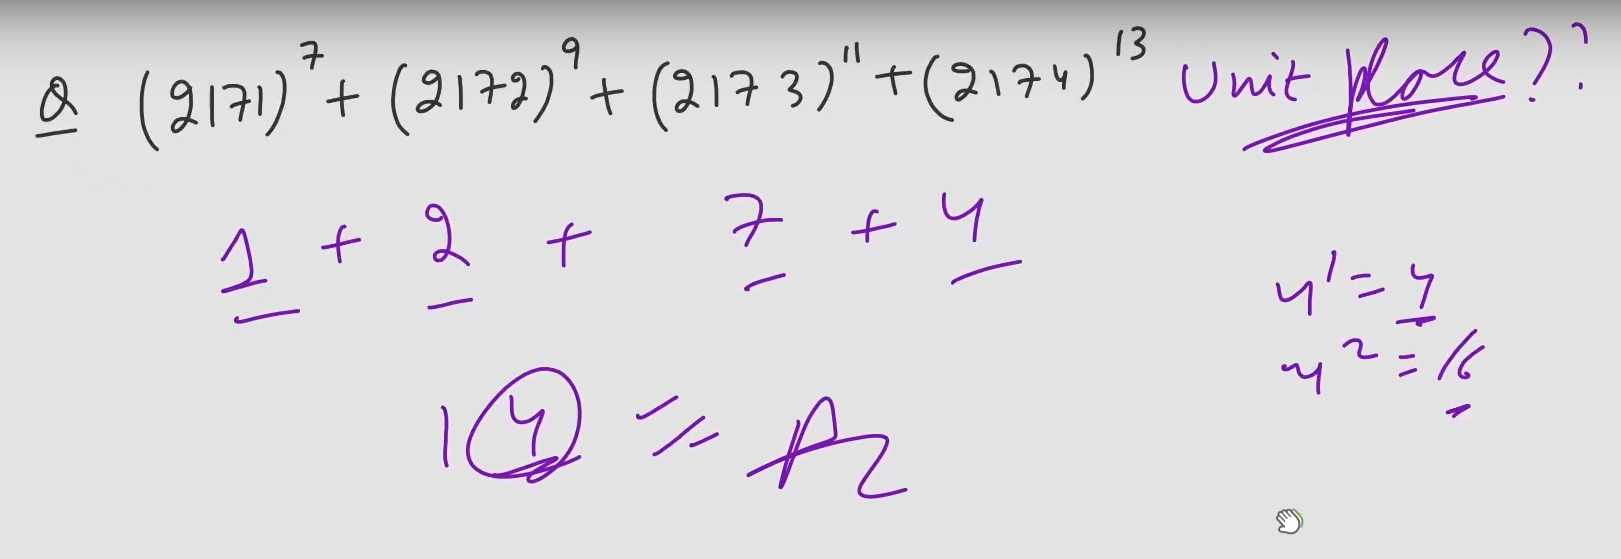 Q (2171)^7 + (2172)^9 + (2173)^11 + (2174)^13 Unit place??
1 + 2 + 7 + 4
4^1 = 4
4^2 = 16
14 = A